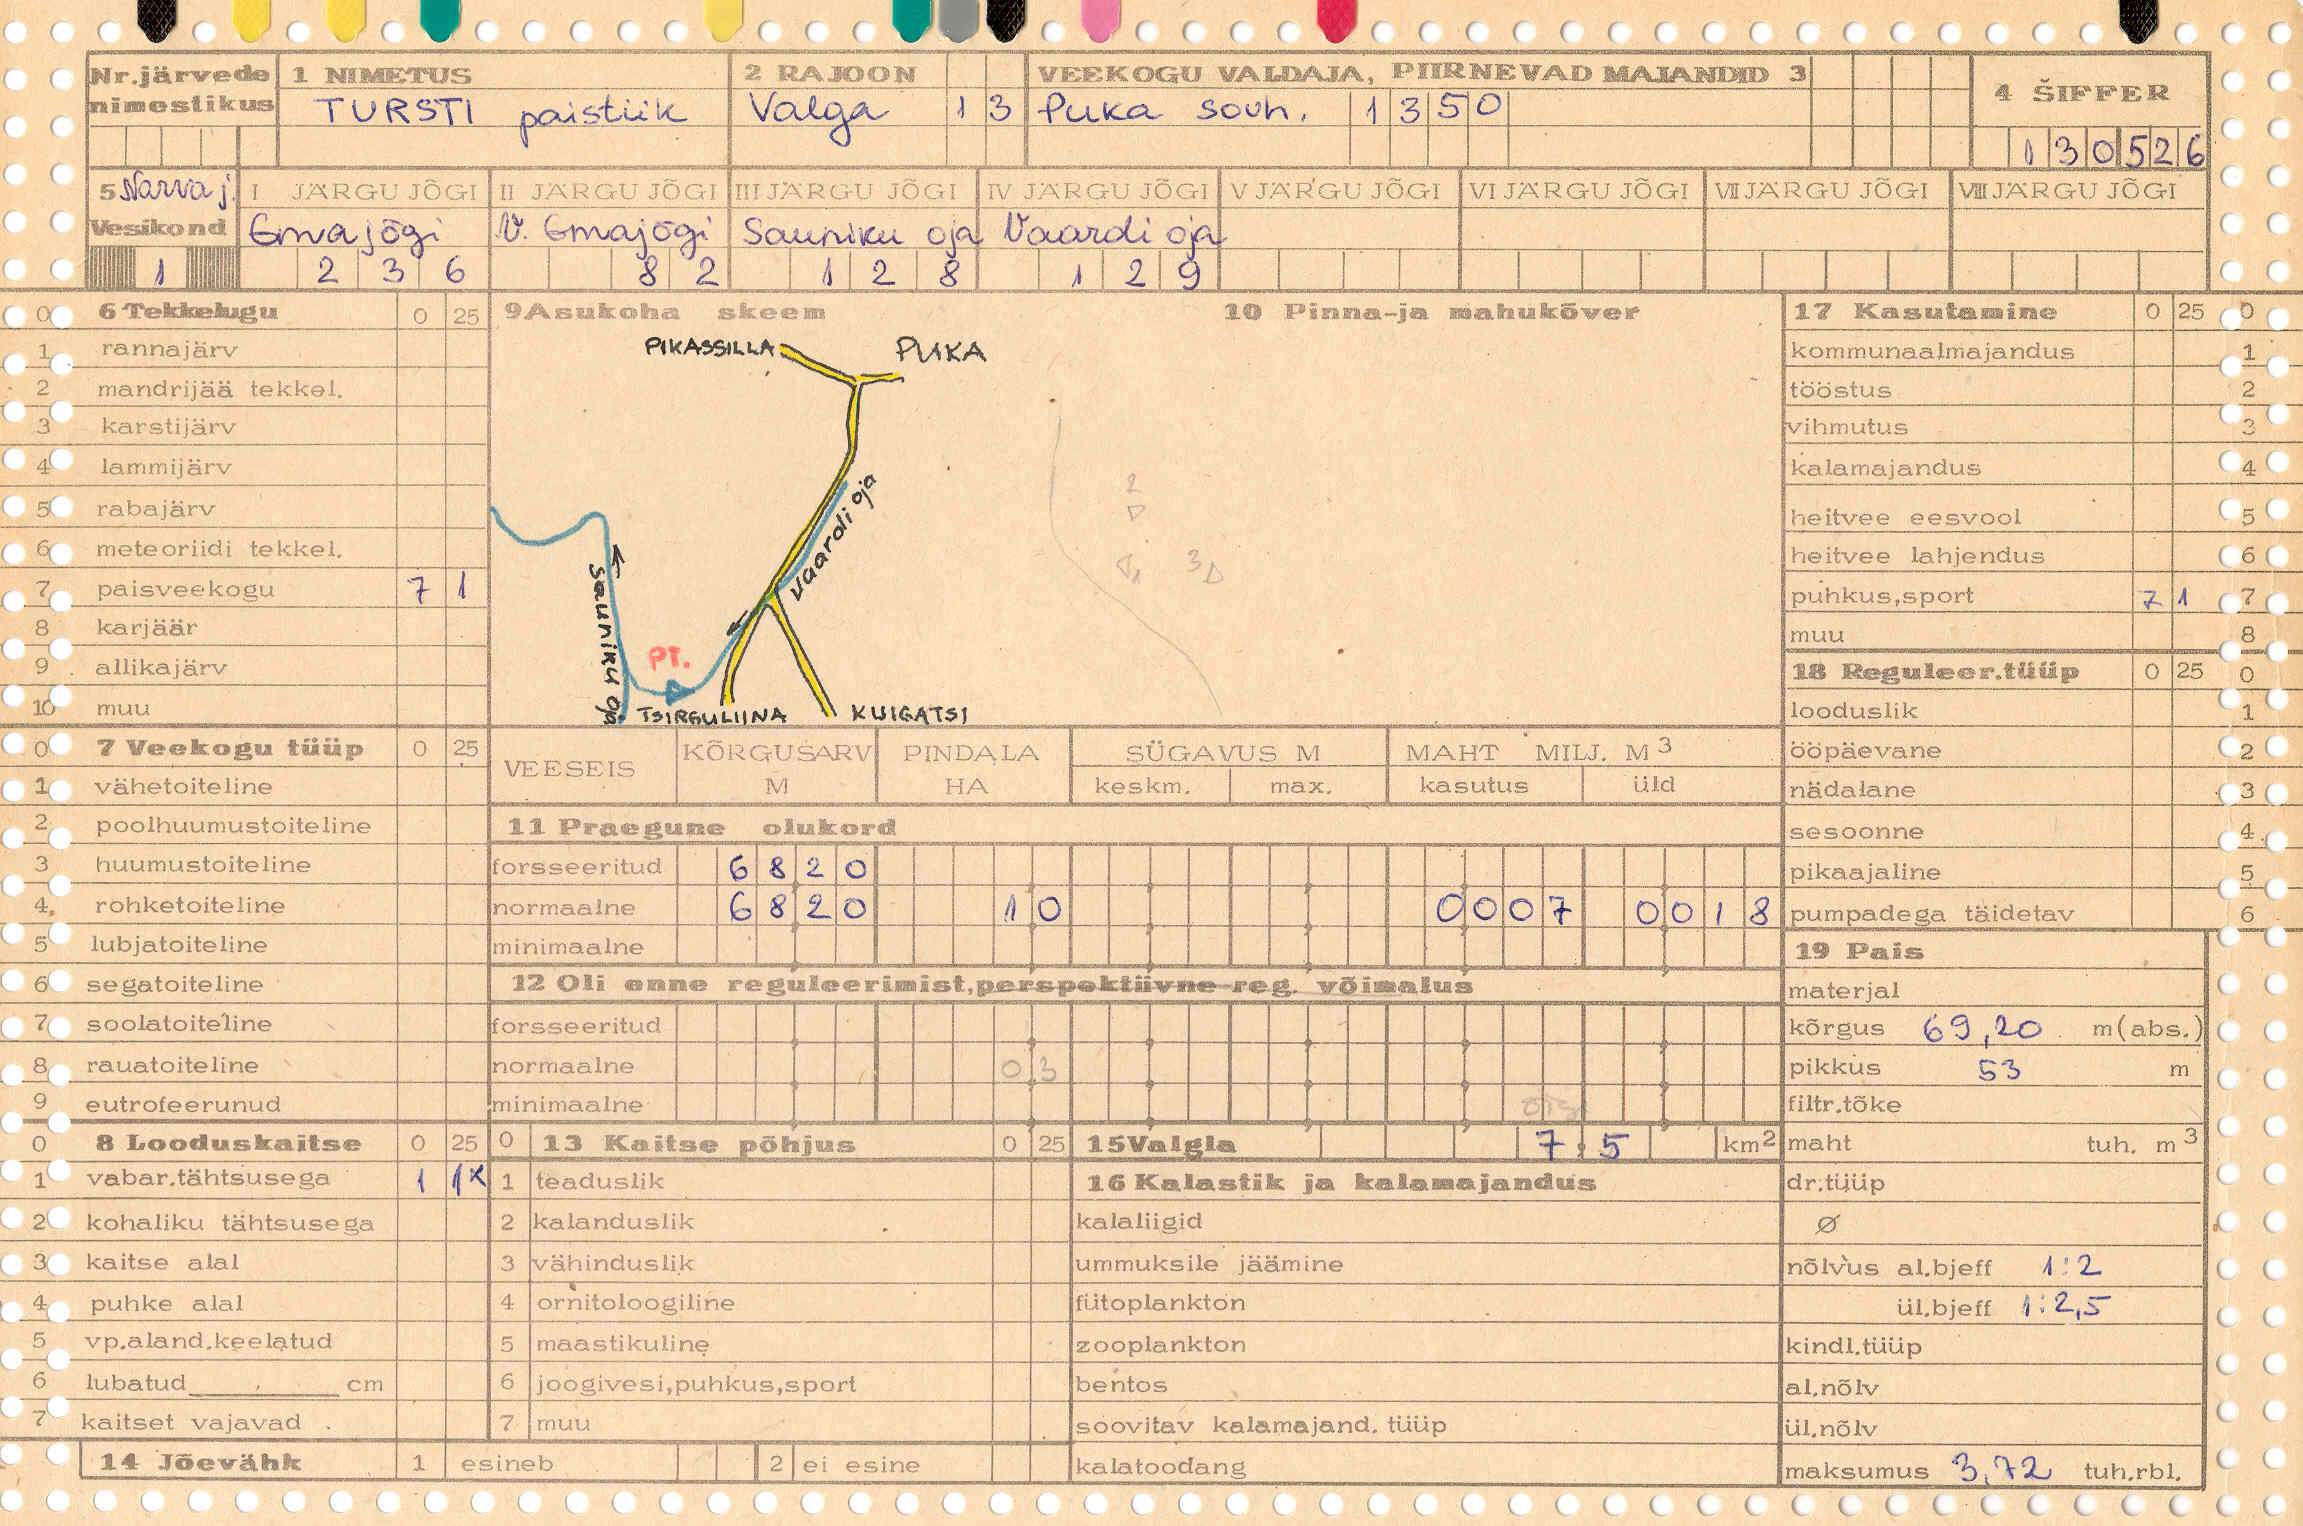 Nr.järvede nimestikus
1 NIMETUS
TURSTI paistiik
2 RAJOON
Valga 1 3
VEEKOGU VALDAJA, PIIRNEVAD MAJANDID 3
Puka sovh. 1 3 5 0
4 ŠIFFER
1 3 0 5 2 6
5 Narva j.
Vesikond
1
I JÄRGU JÕGI
Emajõgi
2 3 6
II JÄRGU JÕGI
V. Emajõgi
8 2
III JÄRGU JÕGI
Sauniku oja
1 2 8
IV JÄRGU JÕGI
Vaardi oja
1 2 9
V JÄRGU JÕGI
VI JÄRGU JÕGI
VII JÄRGU JÕGI
VIII JÄRGU JÕGI
0 6 Tekkelugu 0 25
1 rannajärv
2 mandrijää tekkel.
3 karstijärv
4 lammijärv
5 rabajärv
6 meteoriidi tekkel.
7 paisveekogu 7 1
8 karjäär
9 allikajärv
10 muu
0 7 Veekogu tüüp 0 25
1 vähetoiteline
2 poolhuumustoiteline
3 huumustoiteline
4 rohketoiteline
5 lubjatoiteline
6 segatoiteline
7 soolatoiteline
8 rauatoiteline
9 eutrofeerunud
0 8 Looduskaitse 0 25
1 vabar.tähtsusega 1 1x
2 kohaliku tähtsusega
3 kaitse alal
4 puhke alal
5 vp.aland.keelatud
6 lubatud cm
7 kaitset vajavad
9 Asukoha skeem
PIKASSILLA
PUKA
Vaardi oja
Sauniku oja
PT.
TSIRGULIINA
KUIGATSI
10 Pinna-ja mahukõver
2
3
VEESEIS
KÕRGUSARV M
PINDALA HA
SÜGAVUS M
keskm. max.
MAHT MILJ. M3
kasutus üld
11 Praegune olukord
forsseeritud 6 8 2 0
normaalne 6 8 2 0 1 0 0 0 0 7 0 0 1 8
minimaalne
12 Oli enne reguleerimist,perspektiivne reg. võimalus
forsseeritud
normaalne 0 3
minimaalne
0 13 Kaitse põhjus 0 25
1 teaduslik
2 kalanduslik
3 vähinduslik
4 ornitoloogiline
5 maastikuline
6 joogivesi,puhkus,sport
7 muu
14 Jõevähk 1 esineb 2 ei esine
15 Valgla 7,5 km2
16 Kalastik ja kalamajandus
kalaliigid
ummuksile jäämine
fütoplankton
zooplankton
bentos
soovitav kalamajand. tüüp
kalatoodang
17 Kasutamine 0 25 0
kommunaalmajandus 1
tööstus 2
vihmutus 3
kalamajandus 4
heitvee eesvool 5
heitvee lahjendus 6
puhkus,sport 7 1 7
muu 8
18 Reguleer.tüüp 0 25 0
looduslik 1
ööpäevane 2
nädalane 3
sesoonne 4
pikaajaline 5
pumpadega täidetav 6
19 Pais
materjal
kõrgus 69,20 m(abs.)
pikkus 53 m
filtr.tõke
maht tuh. m3
dr.tüüp
Ø
nõlvus al.bjeff 1:2
ül.bjeff 1:2,5
kindl.tüüp
al.nõlv
ül.nõlv
maksumus 3,72 tuh.rbl.